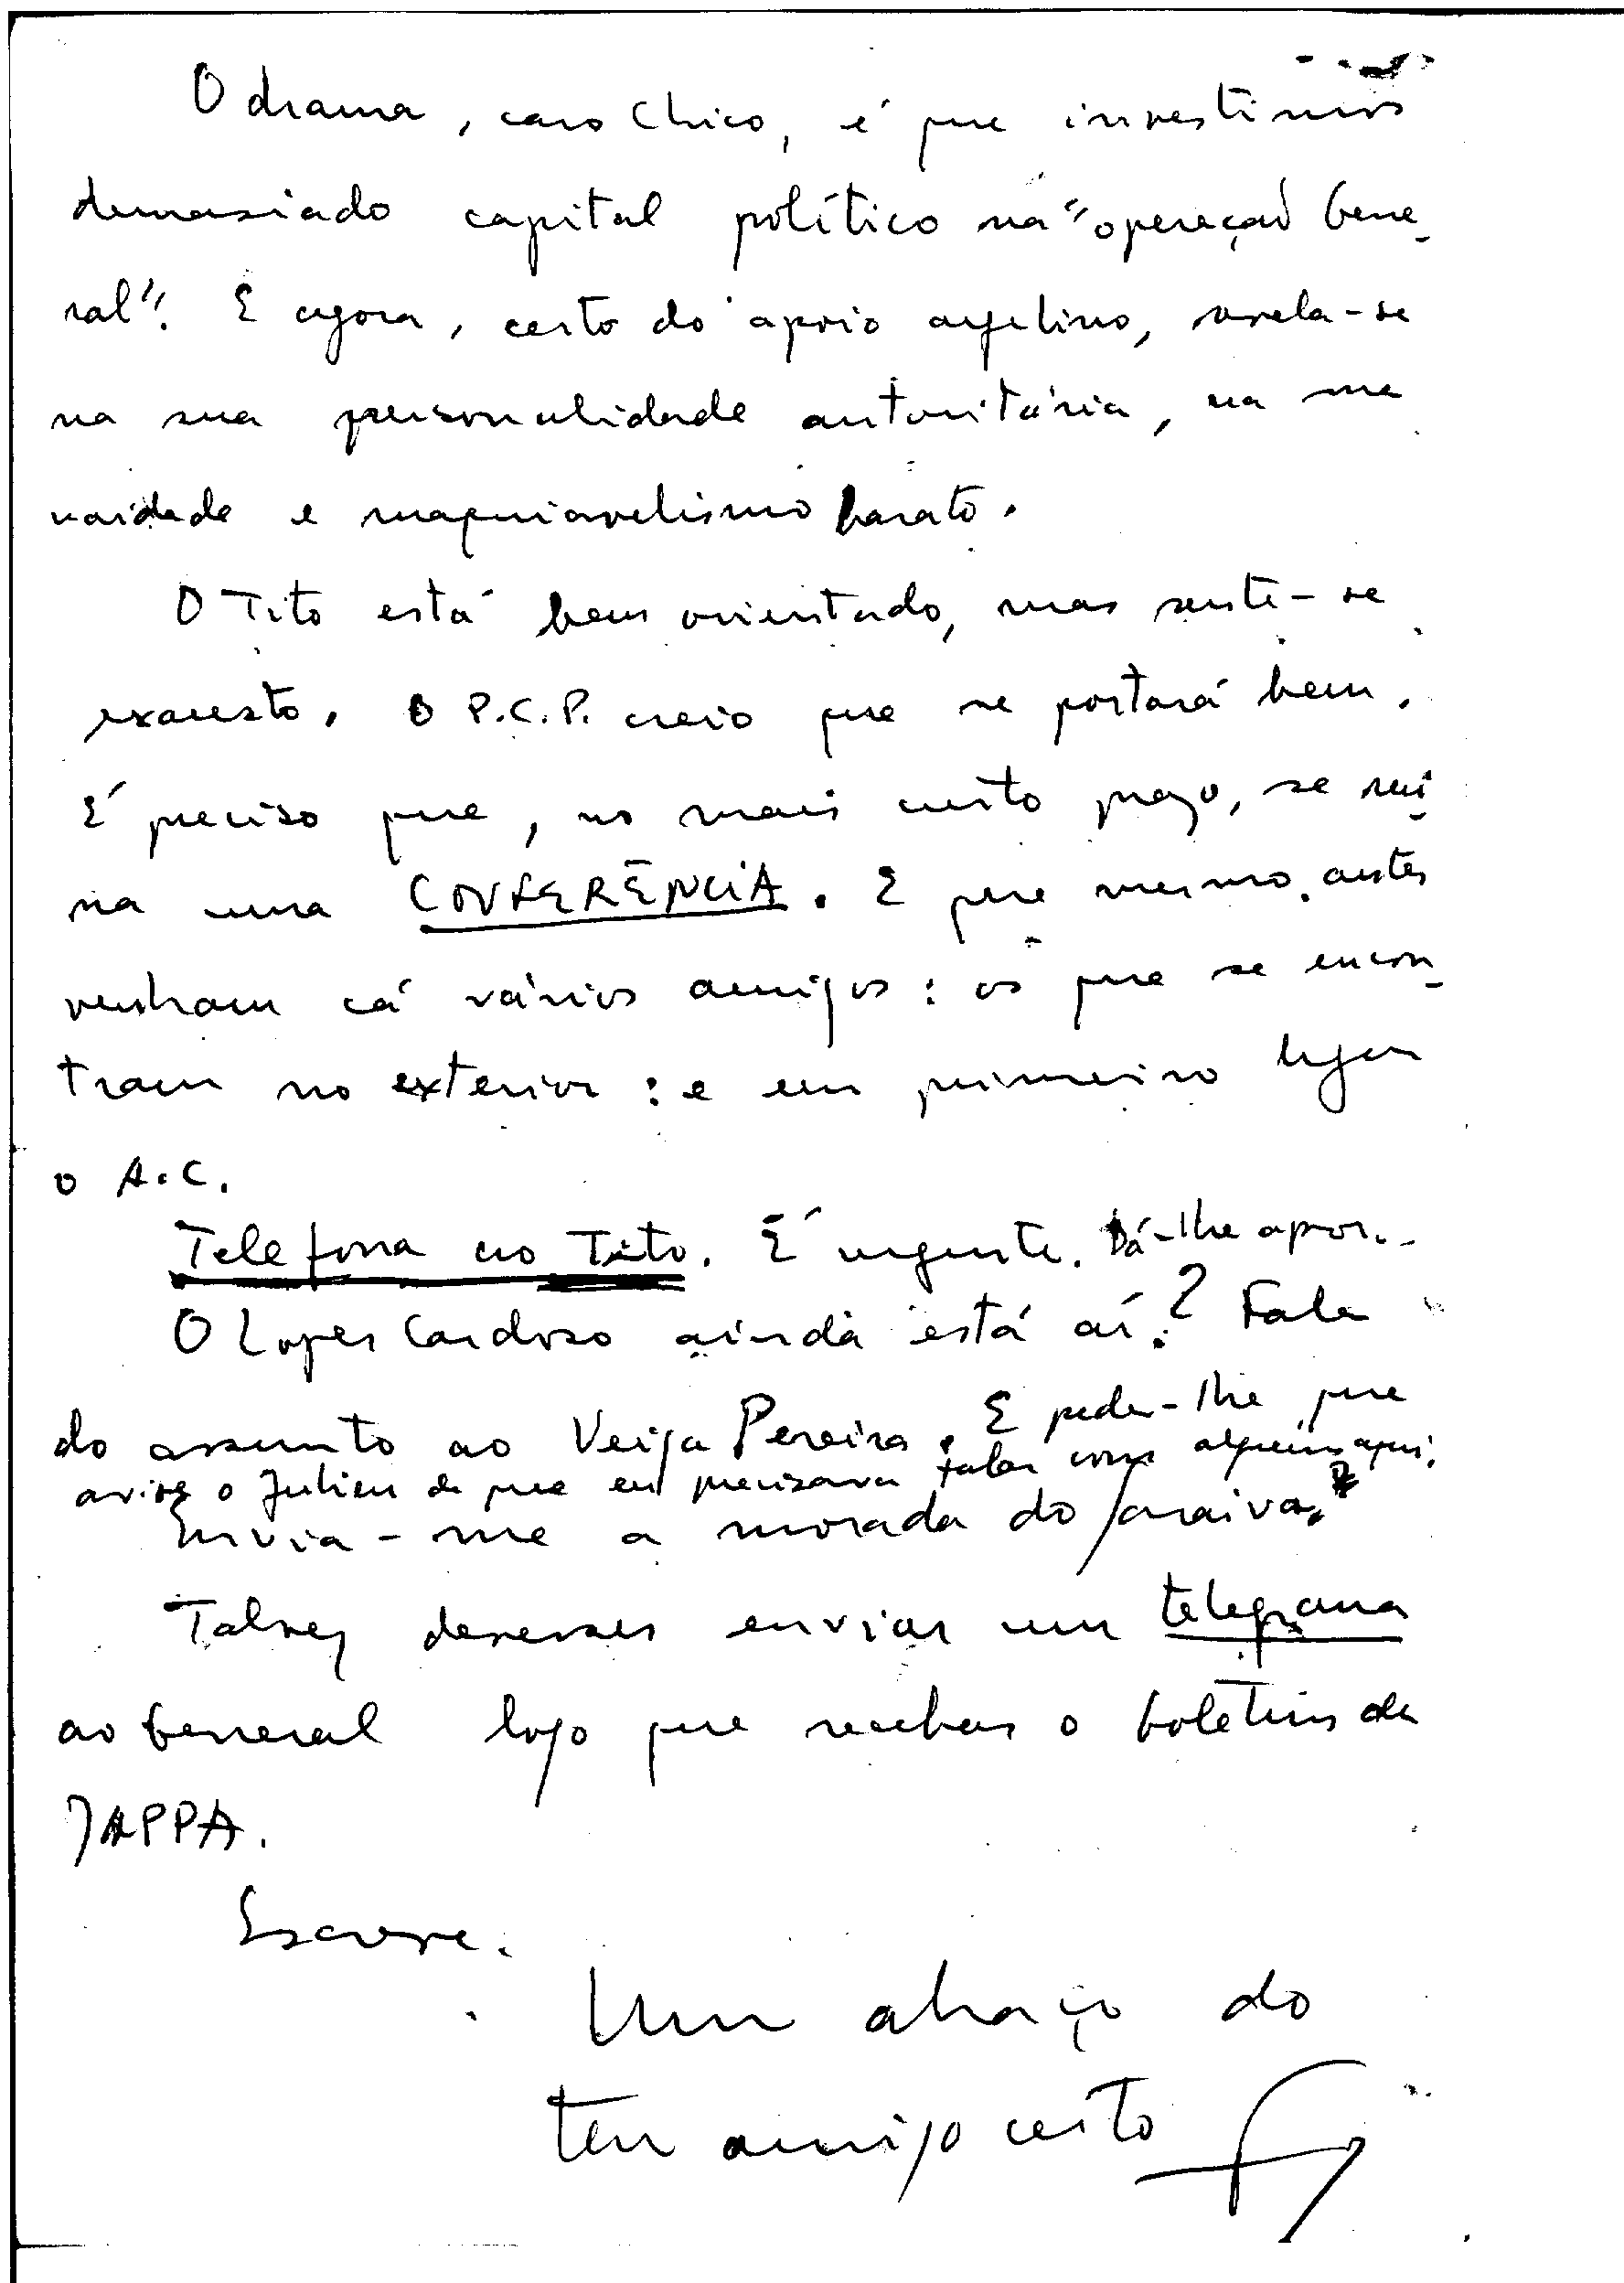 O drama, caro Chico, é que investimos
demasiado capital político na "operação Gene-
ral". E agora, certo do apoio argelino, revela-se
na sua personalidade autoritária, na sua
vaidade e maquiavelismo barato.
O Tito está bem orientado, mas sente-se
exausto. O P.C.P. creio que se portará bem.
É preciso que, no mais curto prazo, se reú-
na uma CONFERÊNCIA. E que mesmo antes
venham cá vários amigos: os que se encon-
tram no exterior: e em primeiro lugar
o A.C.
Telefona ao Tito. É urgente. Dá-lhe apoio.
O Lopes Cardoso ainda está aí? Fala
do assunto ao Veiga Pereira. E pede-lhe que
avise o Julien de que eu precisava falar com alguém aqui.
Envia-me a morada do
Talvez devesses enviar um telegrama
ao General logo que recebas o boletim da
JAPPA.
Escreve.
Um abraço do
teu amigo certo